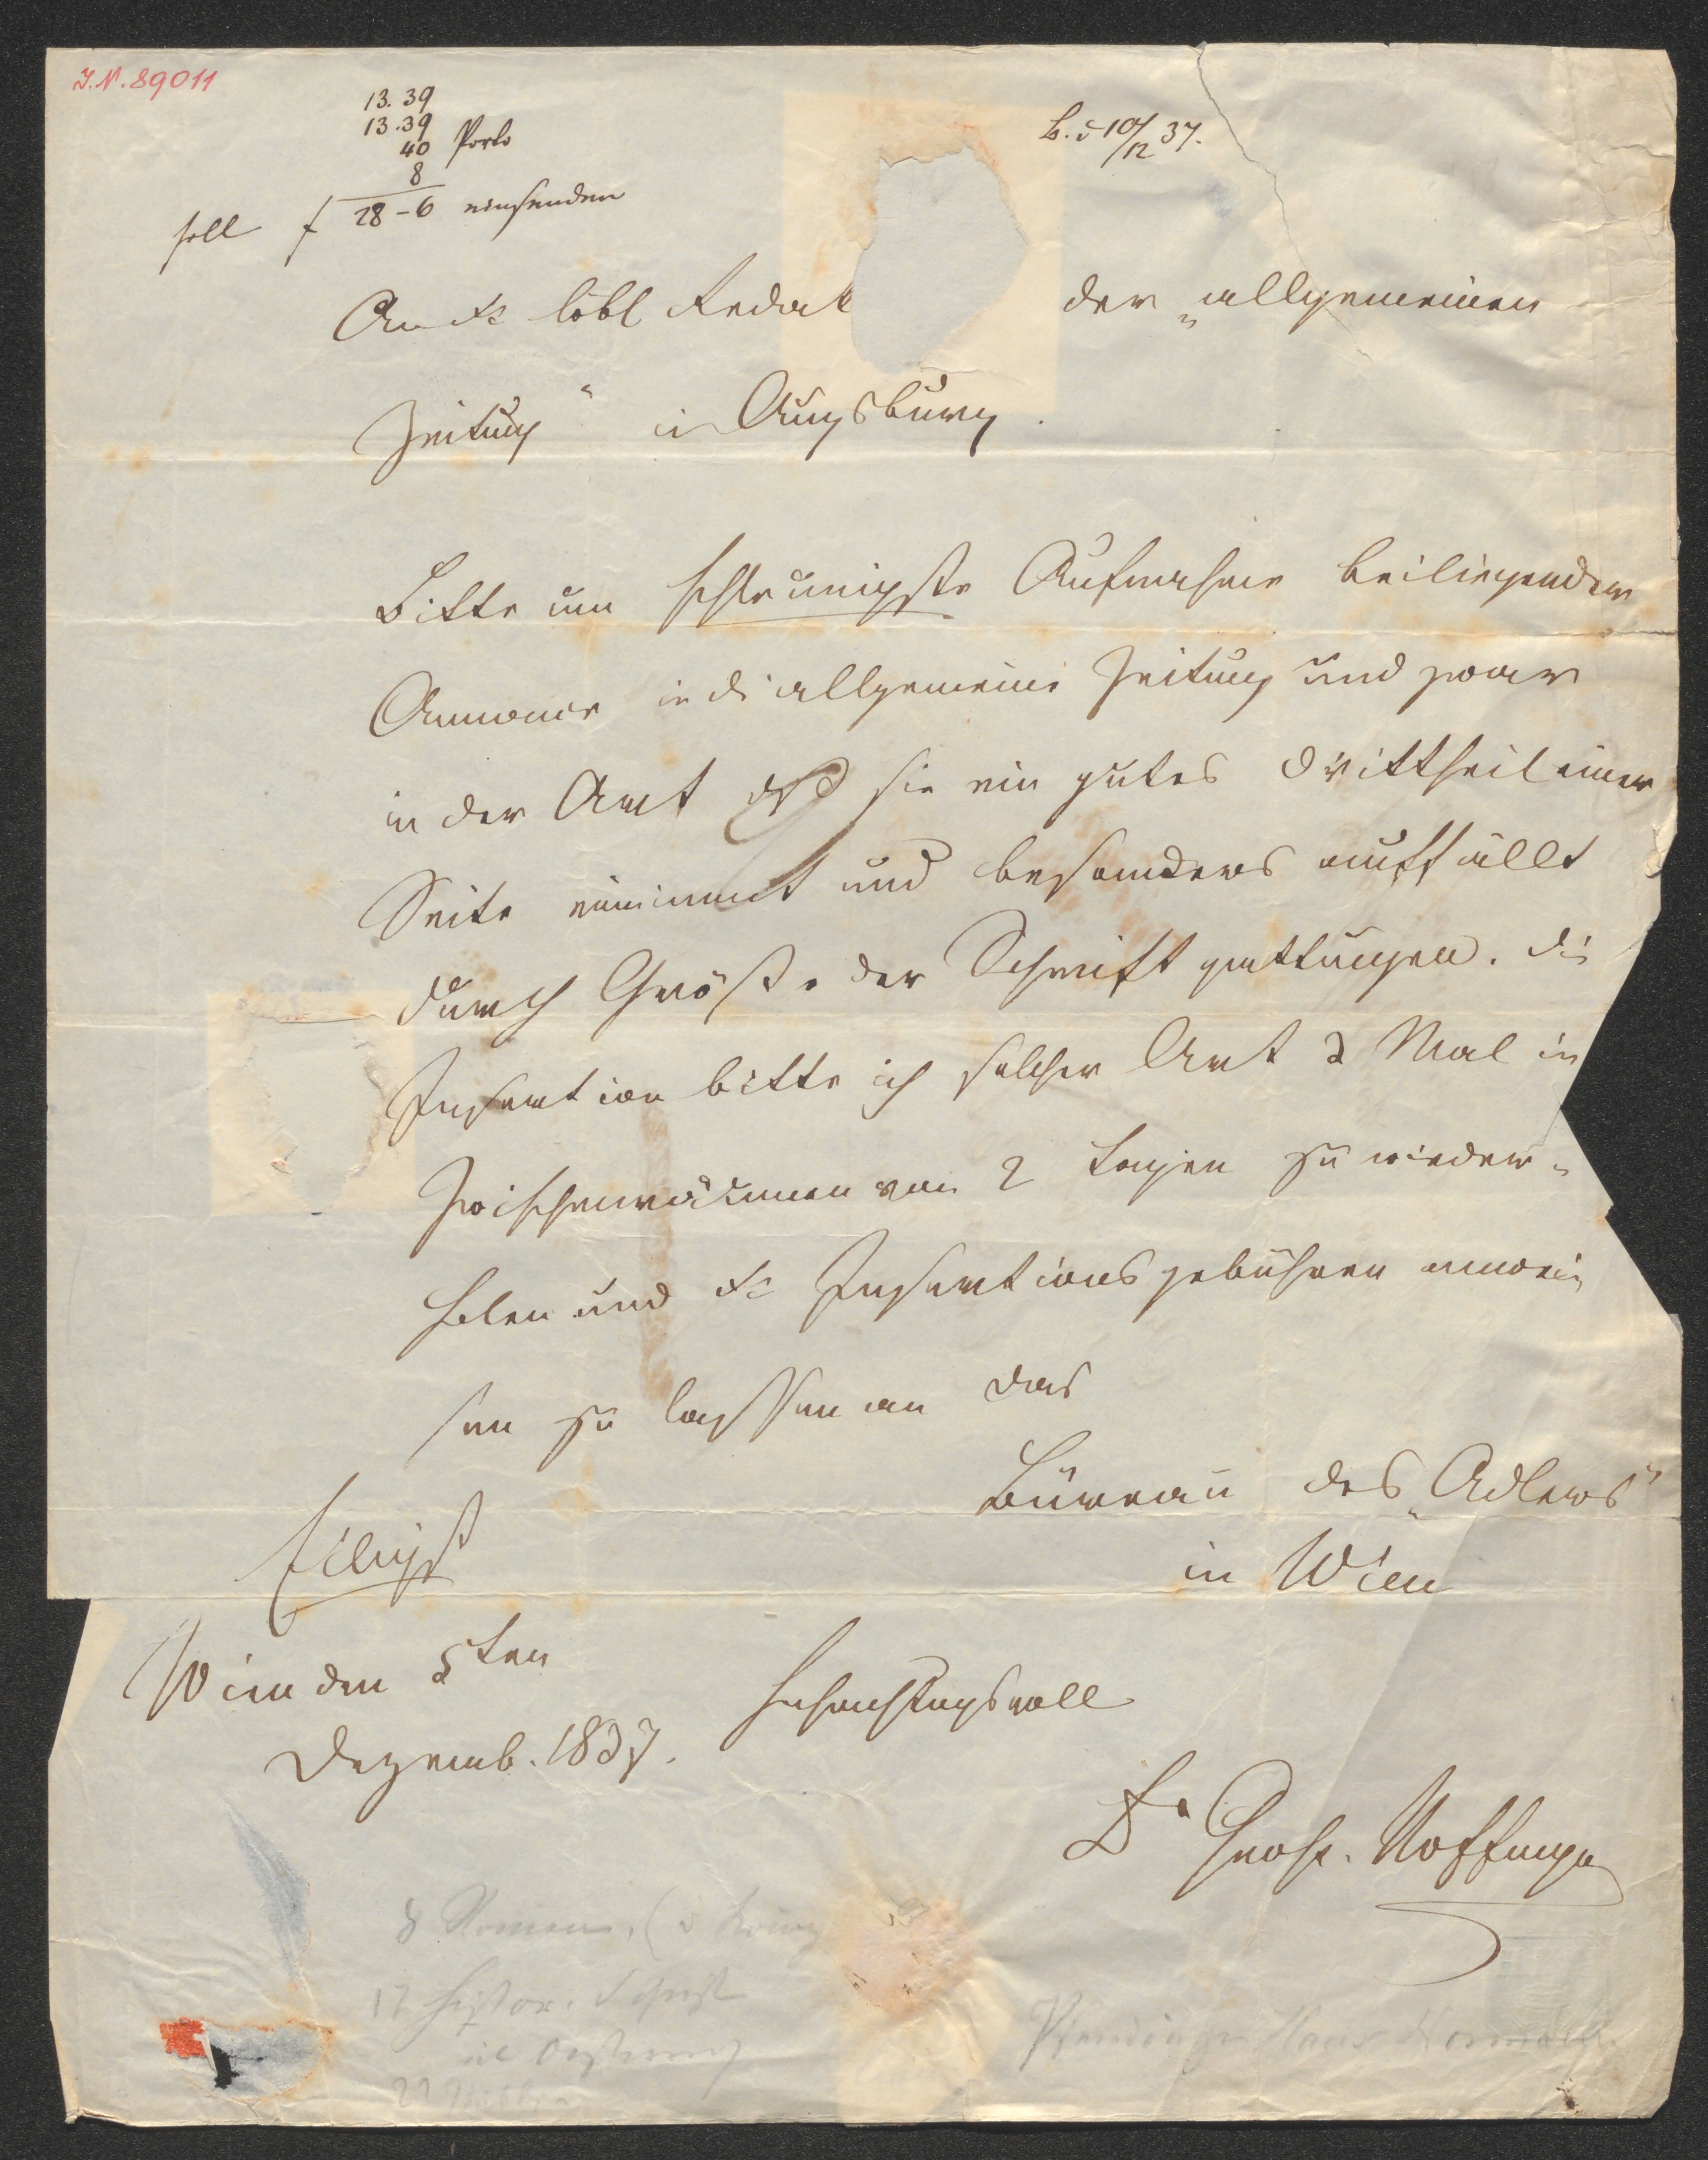 I.N. 89011
13.39
13.39
40 Porto
8
soll f 28-6 einsenden
B. d 10/12 37.
An die löbl Redak der „allgemeinen
Zeitung“ in Augsburg.
Bitte um schleunigste Aufnahme beiliegender
Annonce in die allgemeine Zeitung und zwar
in der Art daß sie ein gutes Drittheil einer
Seite einnimmt und besonders auffällt
durch Größe der Schriftgattungen. Die
Insertion bitte ich solcher Art 2 Mal in
Zwischenräumen von 2 Tagen zu wieder-
holen und die Insertionsgebühren anwei-
sen zu lassen an das
Büreau des „Adlers“
in Wien
Eiligst
Wien den 5ten
Dezemb. 1837.
Hochachtungsvoll
Dr Groß-Hoffinger
8 Romane,
17 histor. Schrift